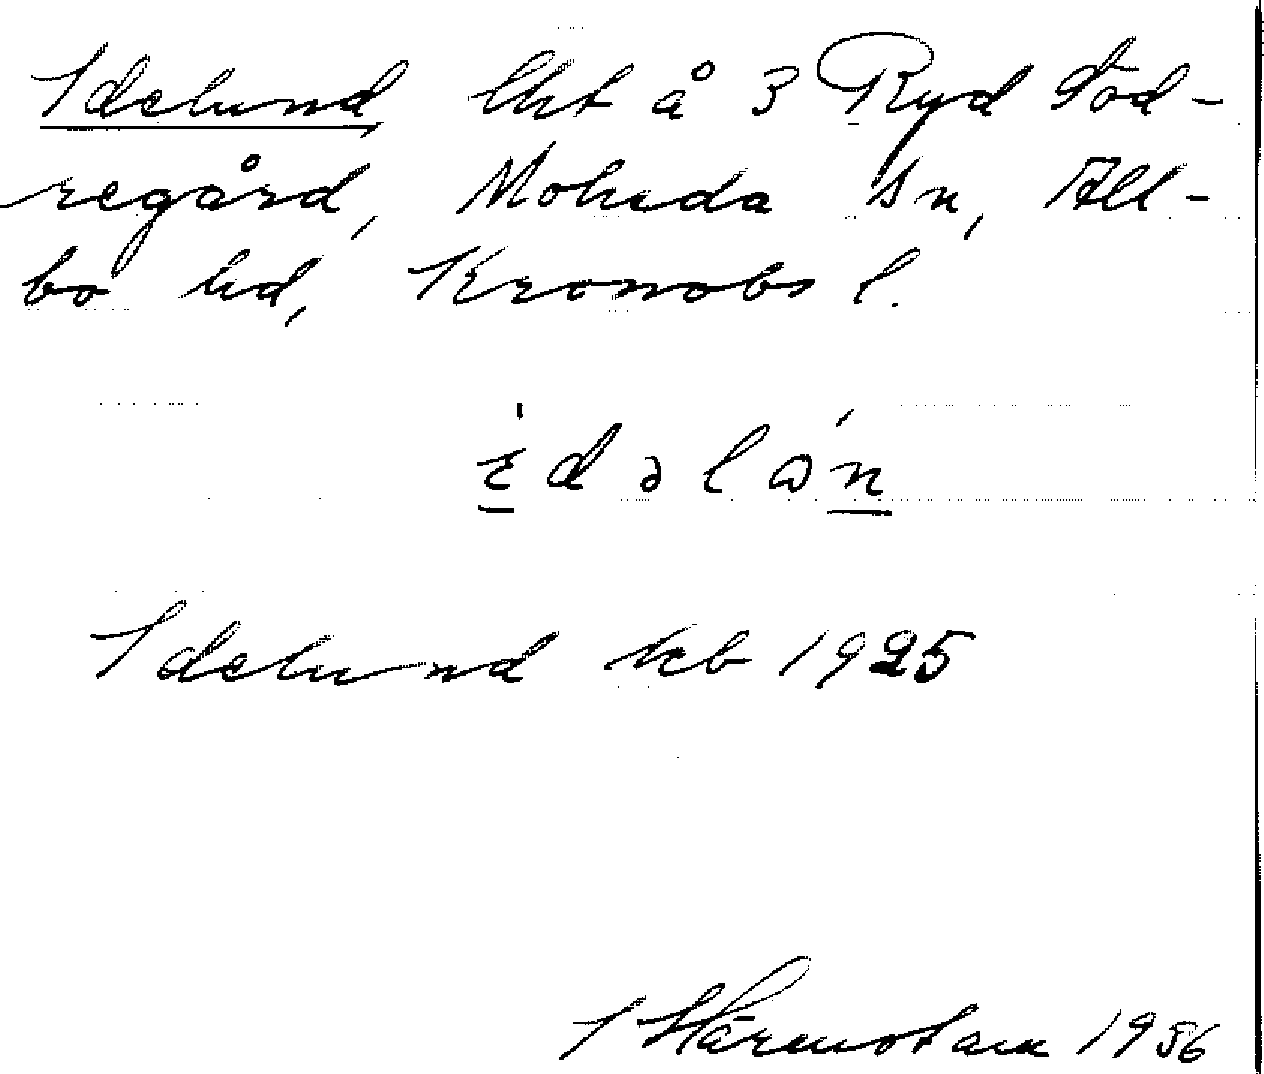 Idelund, lht å 3 Ryd Söd-
regård, Moheda sn, All-
bo hd, Kronobs l.
i d ə l ω n
Idelund kb 1925
I Härenstam 1956